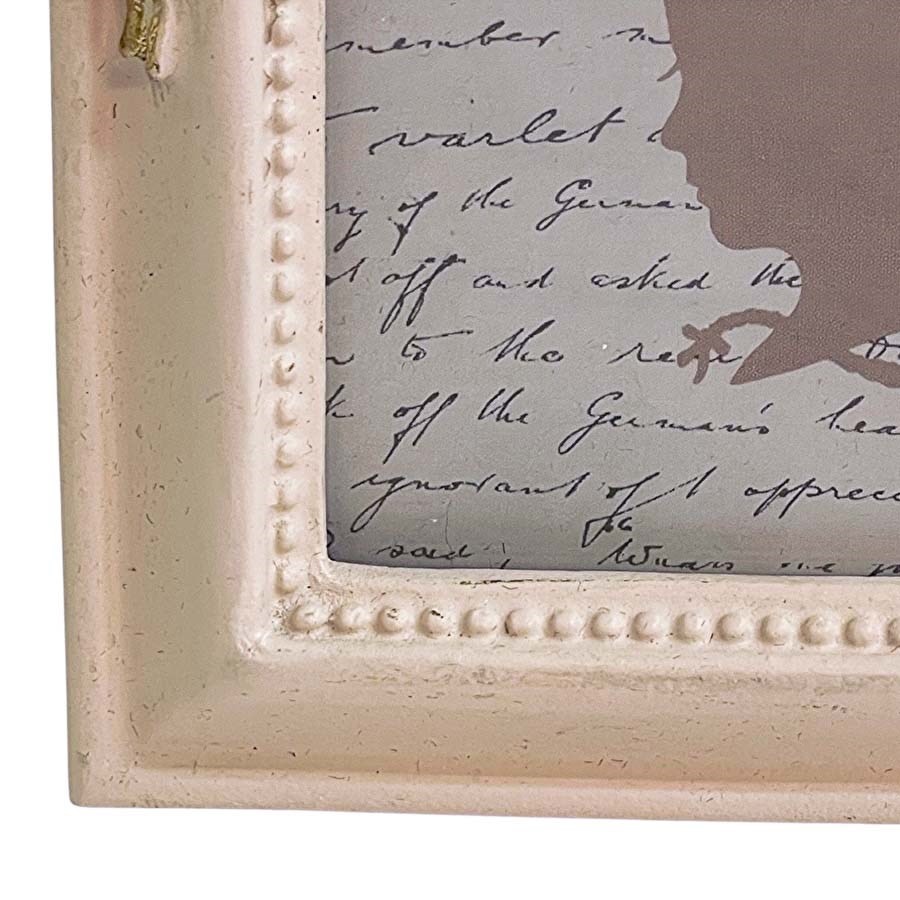 member m
varlet
ry of the German
off and asked the
to the rea
off the German's hea
ignorant of I apprec
said,